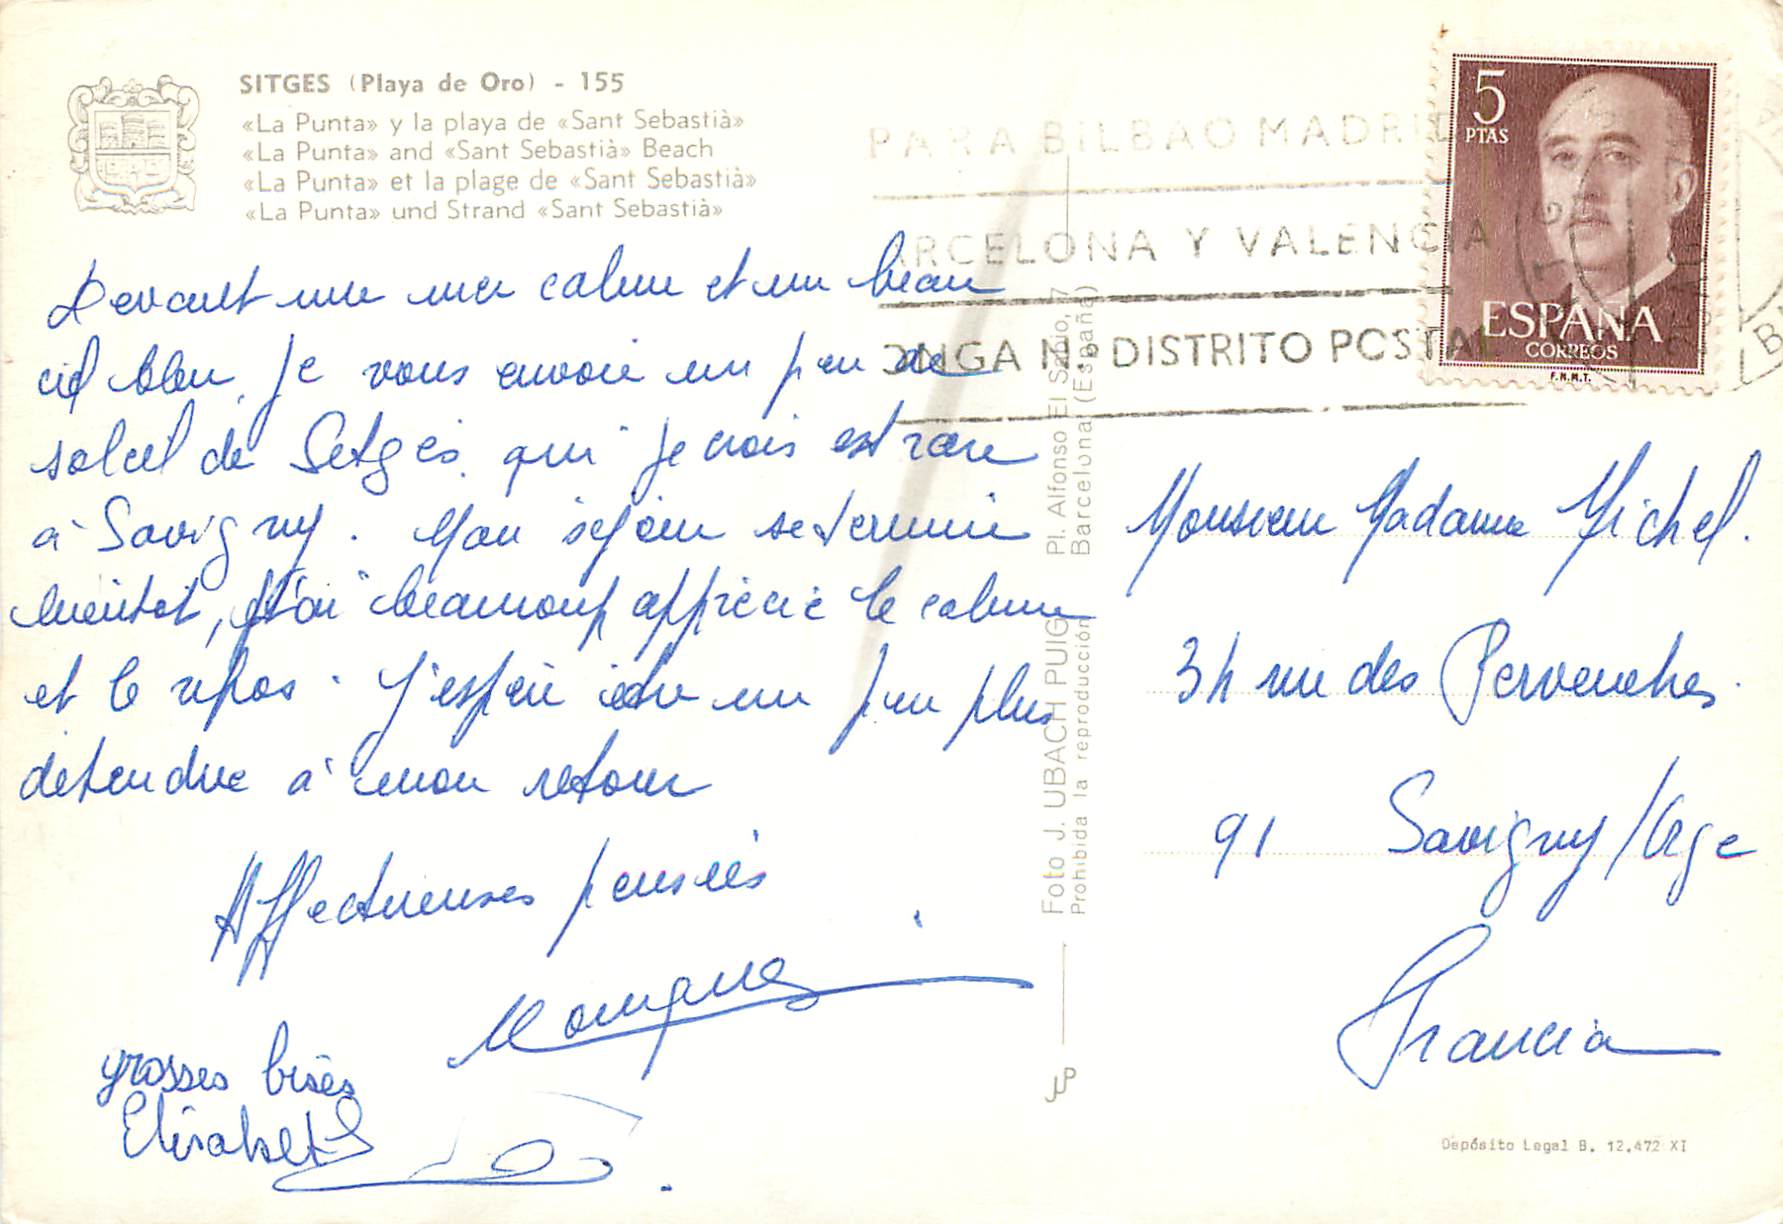 SITGES (Playa de Oro) - 155
«La Punta» y la playa de «Sant Sebastià»
«La Punta» and «Sant Sebastià» Beach
«La Punta» et la plage de «Sant Sebastià»
«La Punta» und Strand «Sant Sebastià»
PARA BILBAO MADRID
ARCELONA Y VALENCIA
ONGA N.º DISTRITO POSTAL
5
PTAS
ESPAÑA
CORREOS
F.N.M.T.
Devant une mer calme et un beau
ciel bleu, je vous envoie un peu de
soleil de Sitges qui je crois est rare
à Savigny. Mon séjour se termine
bientot, j'ai beaucoup apprécié le calme
et le repos. J'espère être un peu plus
détendue à mon retour
Affectueuses pensées
grosses bises
Elisabeth
Foto J. UBACH PUIG Pl. Alfonso El Sabio, 7
Prohibida la reproducción Barcelona (España)
Monsieur Madame Michel.
34 rue des Pervenches.
91 Savigny/Orge
Francia
JUP
Depósito Legal B. 12.472 XI